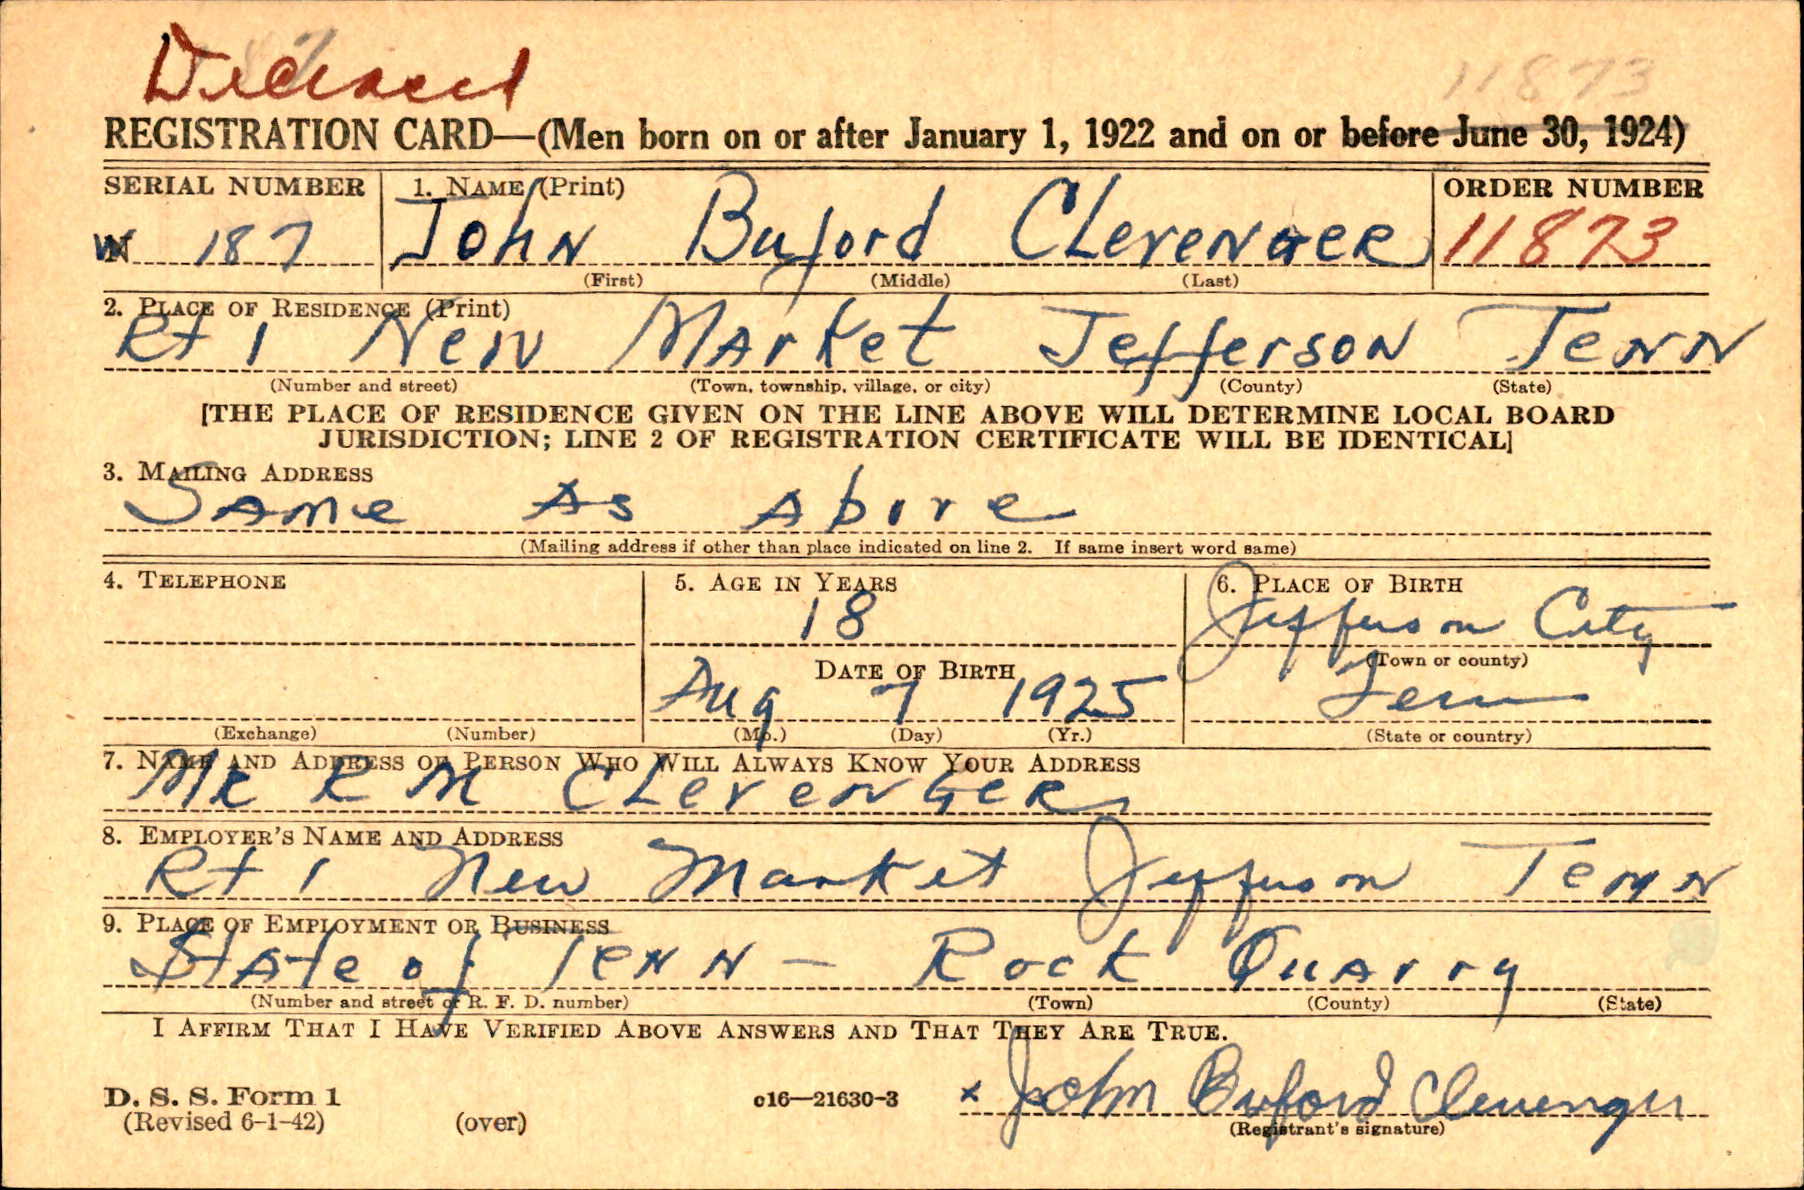 Deceased
11873
REGISTRATION CARD—(Men born on or after January 1, 1922 and on or before June 30, 1924)
SERIAL NUMBER
1. NAME (Print)
ORDER NUMBER
W 187
John Buford Clevenger
11873
(First) (Middle) (Last)
2. PLACE OF RESIDENCE (Print)
Rt 1 New Market Jefferson Tenn
(Number and street) (Town, township, village, or city) (County) (State)
[THE PLACE OF RESIDENCE GIVEN ON THE LINE ABOVE WILL DETERMINE LOCAL BOARD
JURISDICTION; LINE 2 OF REGISTRATION CERTIFICATE WILL BE IDENTICAL]
3. MAILING ADDRESS
Same As Above
(Mailing address if other than place indicated on line 2. If same insert word same)
4. TELEPHONE
(Exchange) (Number)
5. AGE IN YEARS
18
DATE OF BIRTH
Aug 7 1925
(Mo.) (Day) (Yr.)
6. PLACE OF BIRTH
Jefferson City
(Town or county)
Tenn
(State or country)
7. NAME AND ADDRESS OF PERSON WHO WILL ALWAYS KNOW YOUR ADDRESS
MR R M Clevenger
8. EMPLOYER'S NAME AND ADDRESS
Rt 1 New Market Jefferson Tenn
9. PLACE OF EMPLOYMENT OR BUSINESS
State of Tenn — Rock Quarry
(Number and street or R. F. D. number) (Town) (County) (State)
I AFFIRM THAT I HAVE VERIFIED ABOVE ANSWERS AND THAT THEY ARE TRUE.
D. S. S. Form 1
(Revised 6-1-42) (over)
c16—21630-3
x John Buford Clevenger
(Registrant's signature)